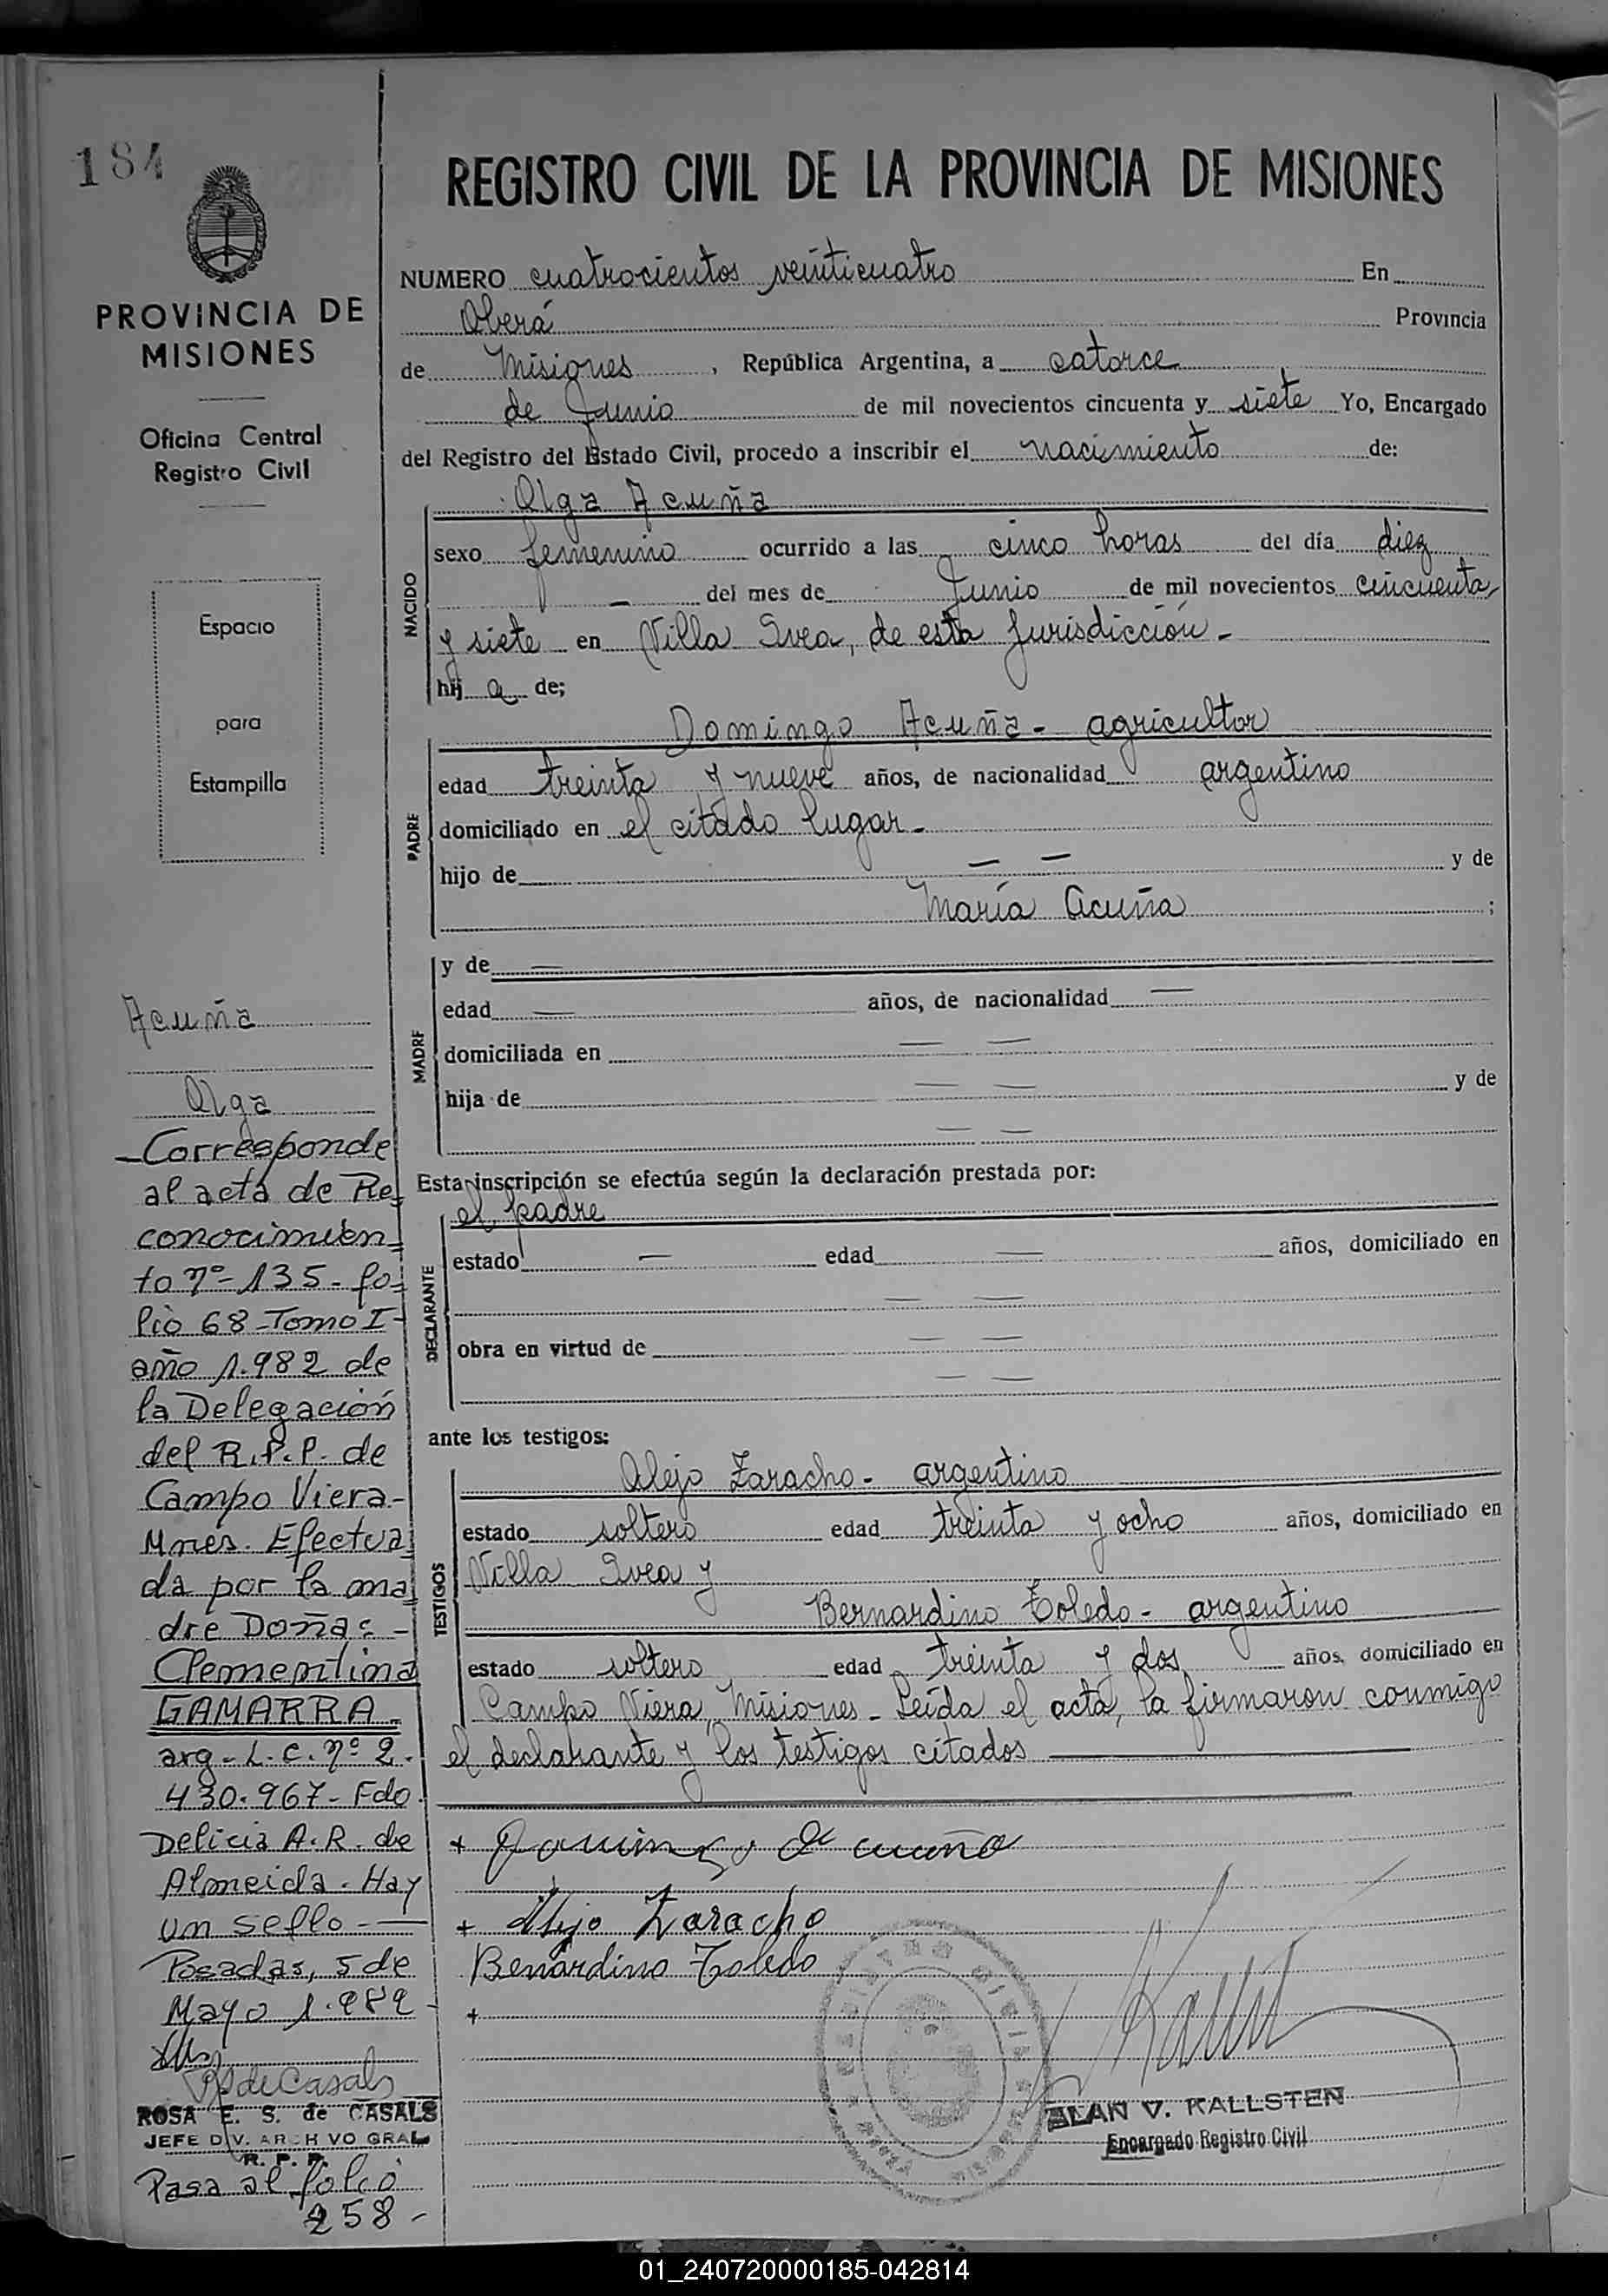 184
PROVINCIA DE
MISIONES
Oficina Central
Registro Civil
Espacio
para
Estampilla
Acuña
Olga
- Corresponde
al acta de Re-
conocimien-
to nº 135 - fo-
lio 68 - Tomo I -
año 1.982 de
la Delegación
del R.P.P. de
Campo Viera -
Mnes. Efectua-
da por la ma-
dre Doña: -
Clementina
GAMARRA -
arg - L. C. nº 2.
430.967 - Fdo.
Delicia A. R. de
Almeida. Hay
un sello. -
Posadas, 5 de
Mayo 1.989 -
de Casals
ROSA E. S. de CASALS
JEFE DIV. ARCHIVO GRAL
R. P. P.
Pasa al folio
258 -
REGISTRO CIVIL DE LA PROVINCIA DE MISIONES
NUMERO cuatrocientos veinticuatro En
Oberá Provincia
de Misiones , República Argentina, a catorce
de Junio de mil novecientos cincuenta y siete Yo, Encargado
del Registro del Estado Civil, procedo a inscribir el nacimiento de:
Olga Acuña
NACIDO
sexo femenino ocurrido a las cinco horas del día diez
— del mes de Junio de mil novecientos cincuenta
y siete en Villa Svea, de esta jurisdicción -
hij a de;
Domingo Acuña - agricultor
PADRE
edad treinta y nueve años, de nacionalidad argentino
domiciliado en el citado lugar -
hijo de — — y de
María Acuña ;
MADRE
y de —
edad — años, de nacionalidad —
domiciliada en — —
hija de — — y de
— —
Esta inscripción se efectúa según la declaración prestada por:
el padre
DECLARANTE
estado — edad — años, domiciliado en
— —
obra en virtud de — —
— —
ante los testigos:
Alejo Zaracho - argentino
TESTIGOS
estado soltero edad treinta y ocho años, domiciliado en
Villa Svea y
Bernardino Toledo - argentino
estado soltero edad treinta y dos años, domiciliado en
Campo Viera, Misiones - Leída el acta, la firmaron conmigo
el declarante y los testigos citados
+ Domingo Acuña
+ Alejo Zaracho
Benardino Toledo
+
ALAN V. KALLSTEN
Encargado Registro Civil
01_240720000185-042814